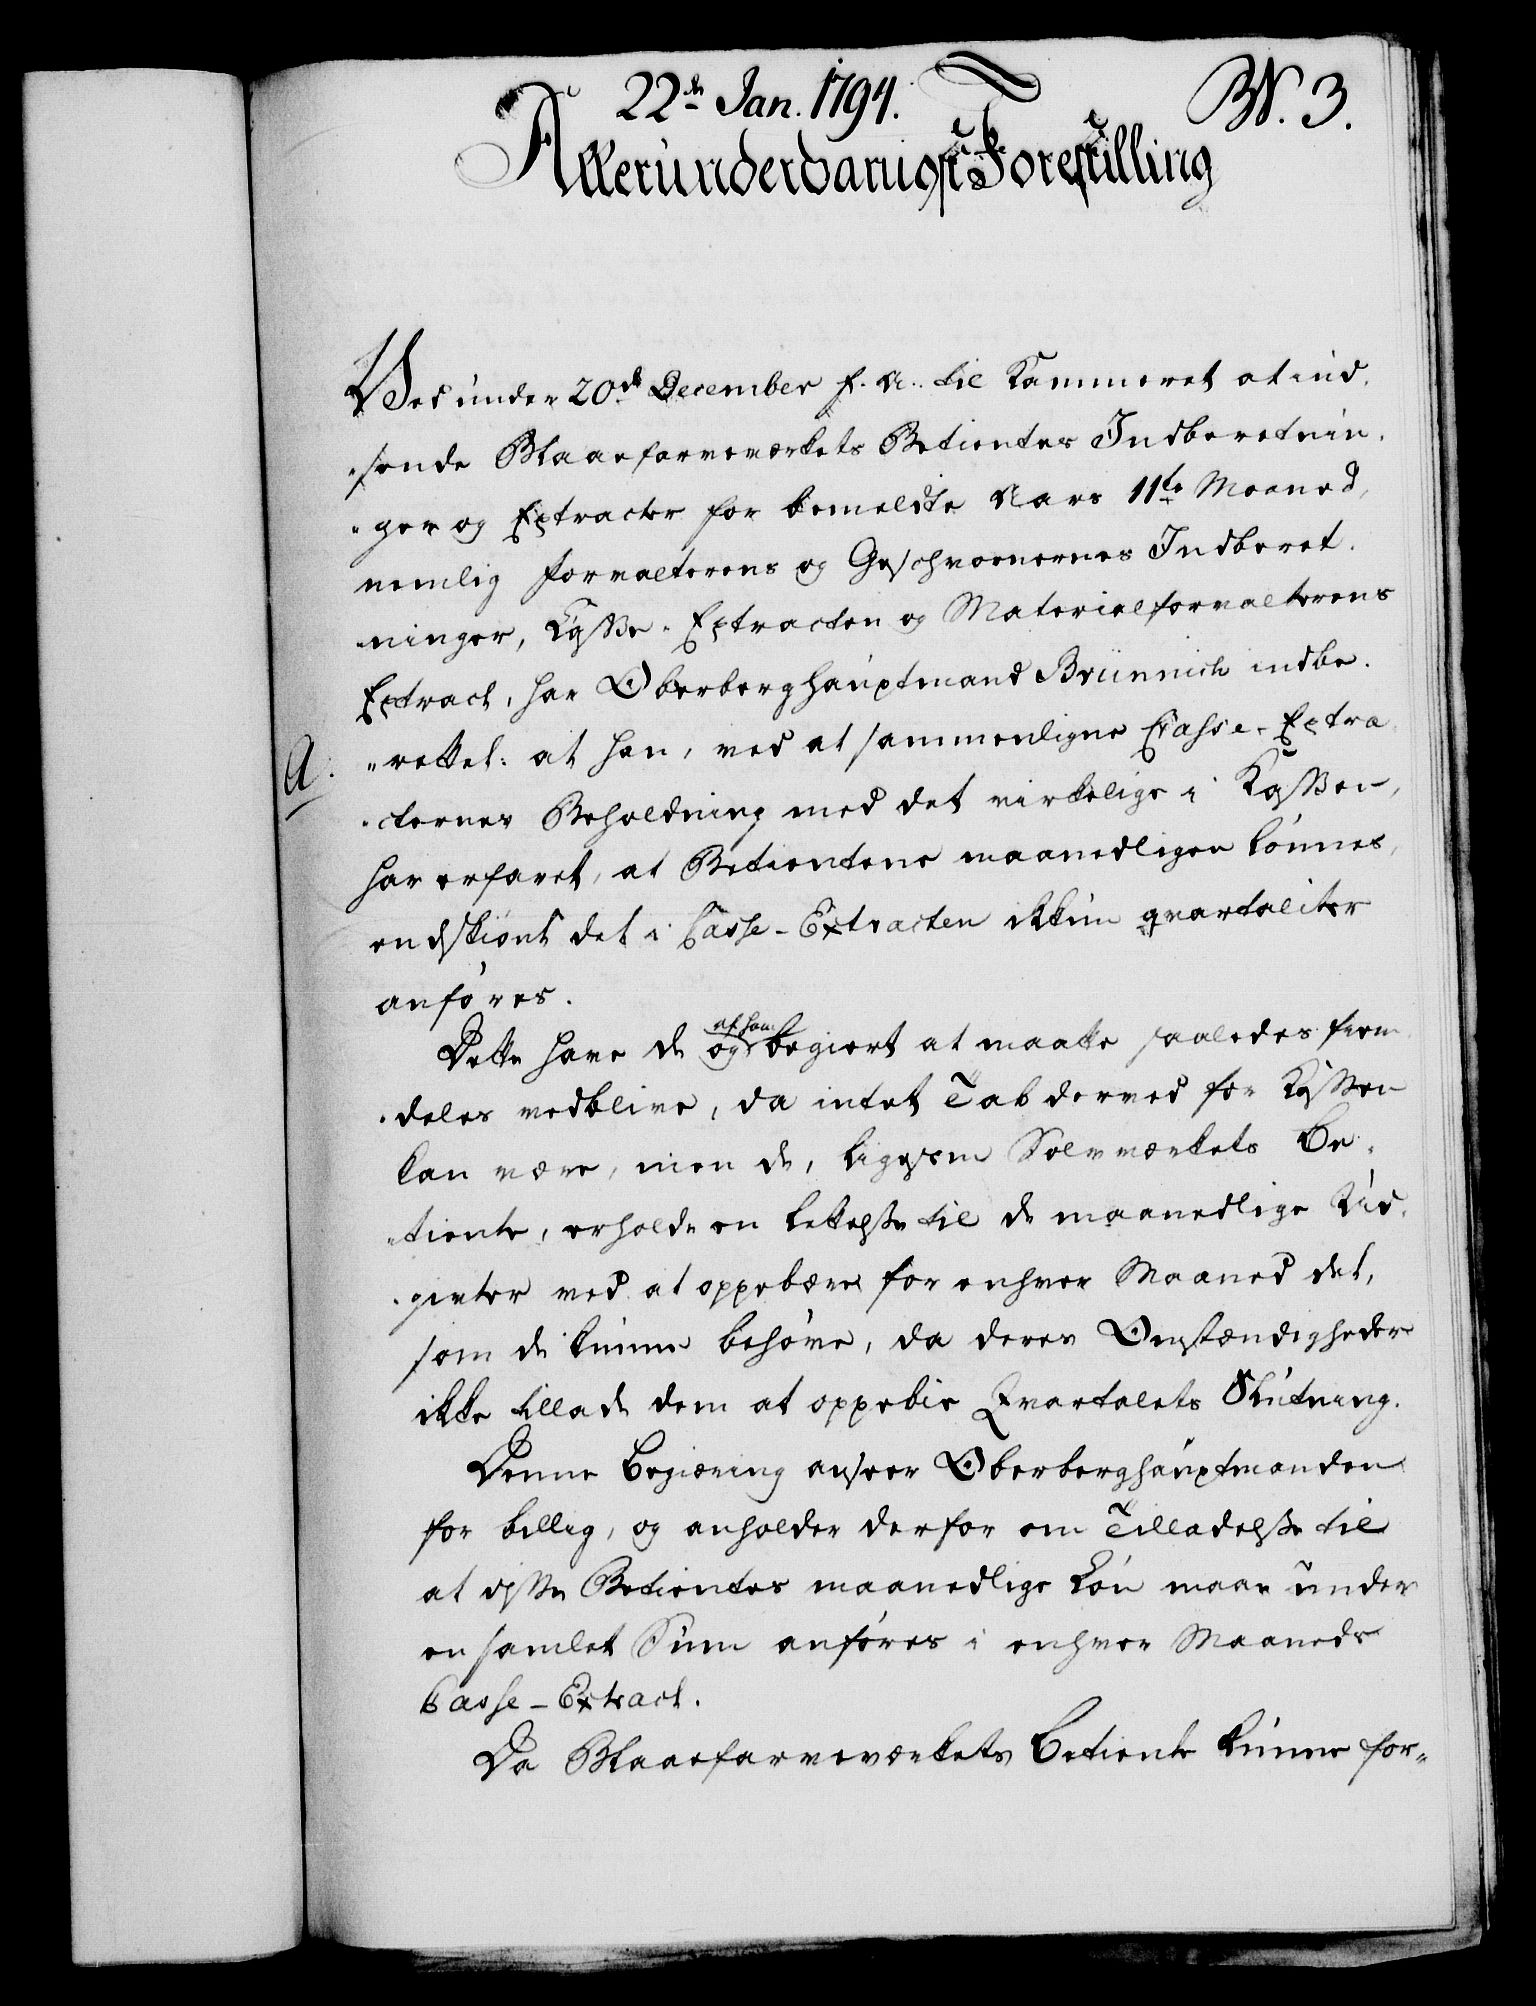 22de Jan. 1794.
BN. 3.
Allerunderdanigst Forestilling
Ved under 20de December f. A. til Kammeret at ind,
"sende Blaaefarveværkets Betientes Indberetnin,
"ger og Extracter for bemeldte Aars 11te Maaned,
nemlig Forvalterens og Geschwornernes Indberet,
ninger, Casse-Extracten og Materialforvalterens
Extract, har Oberberghauptmand Brünnich indbe,
A.
"rettet: at han, ved at sammenligne Casse-Extra
"cternes Beholdning med det virkelige i Kassen,
har erfaret, at Betientene maanedligen lønnes,
endskiønt det i Casse-Extracten ikkun qvartaliter
anføres.
Dette have de og af ham begiert at maatte saaledes frem
"deles vedblive, da intet Tab derved for Kassen
kan være, men de, ligesom Sølvværkets Be,
"tiente, erholde en Lettelse til de maanedlige Ud,
"givter ved at oppebære for enhver Maaned det,
som de kunne behøve, da deres Omstændigheder
ikke tillade dem at oppebie Qvartalets Slutning.
Denne Begiæring anseer Oberberghauptmanden
for billig, og anholder derfor om Tilladelse til
at disse Betientes maanedlige Løn maae under
en samlet Sum anføres i enhver Maaneds
Casse-Extract.
Da Blaaefarveværkets Betiente kunne for„